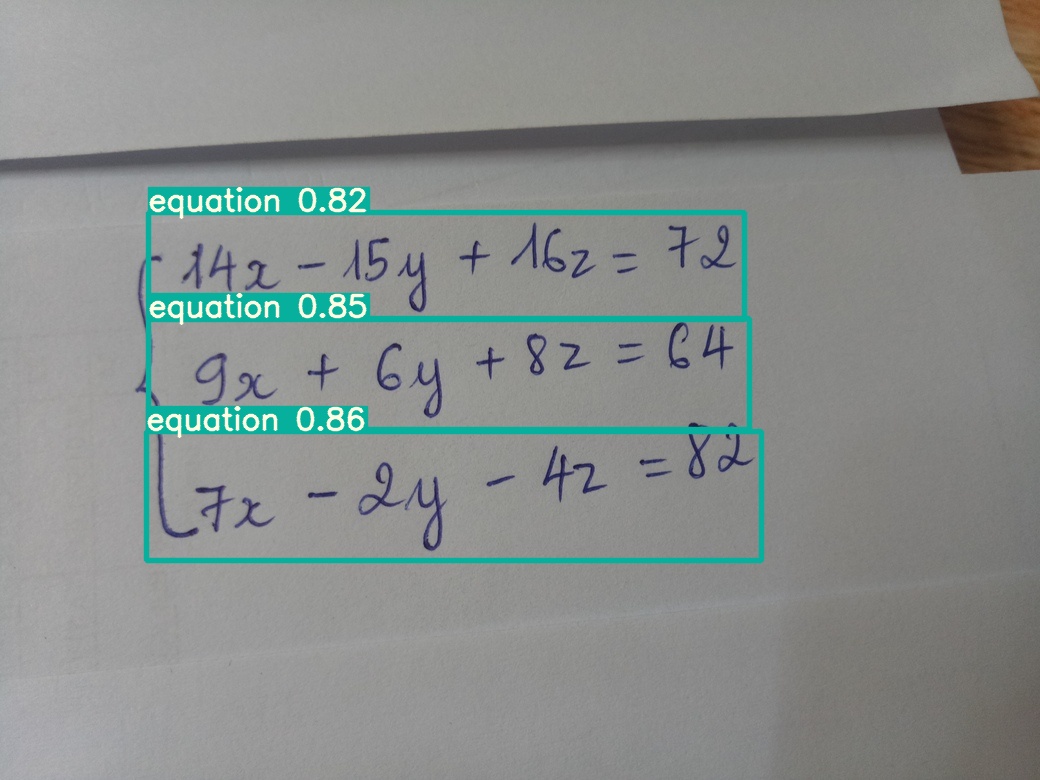 equation 0.82
14x - 15y + 16z = 72
equation 0.85
9x + 6y + 8z = 64
equation 0.86
7x - 2y - 4z = 82